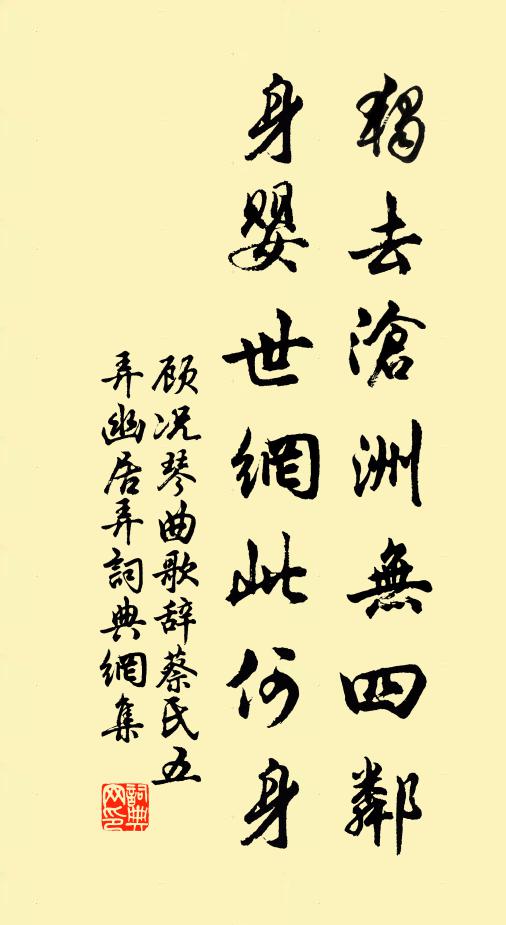 獨去滄洲無四鄰
身嬰世網此何身
顾况琴曲歌辞蔡氏五
弄幽居弄詞典網集
詞典网印